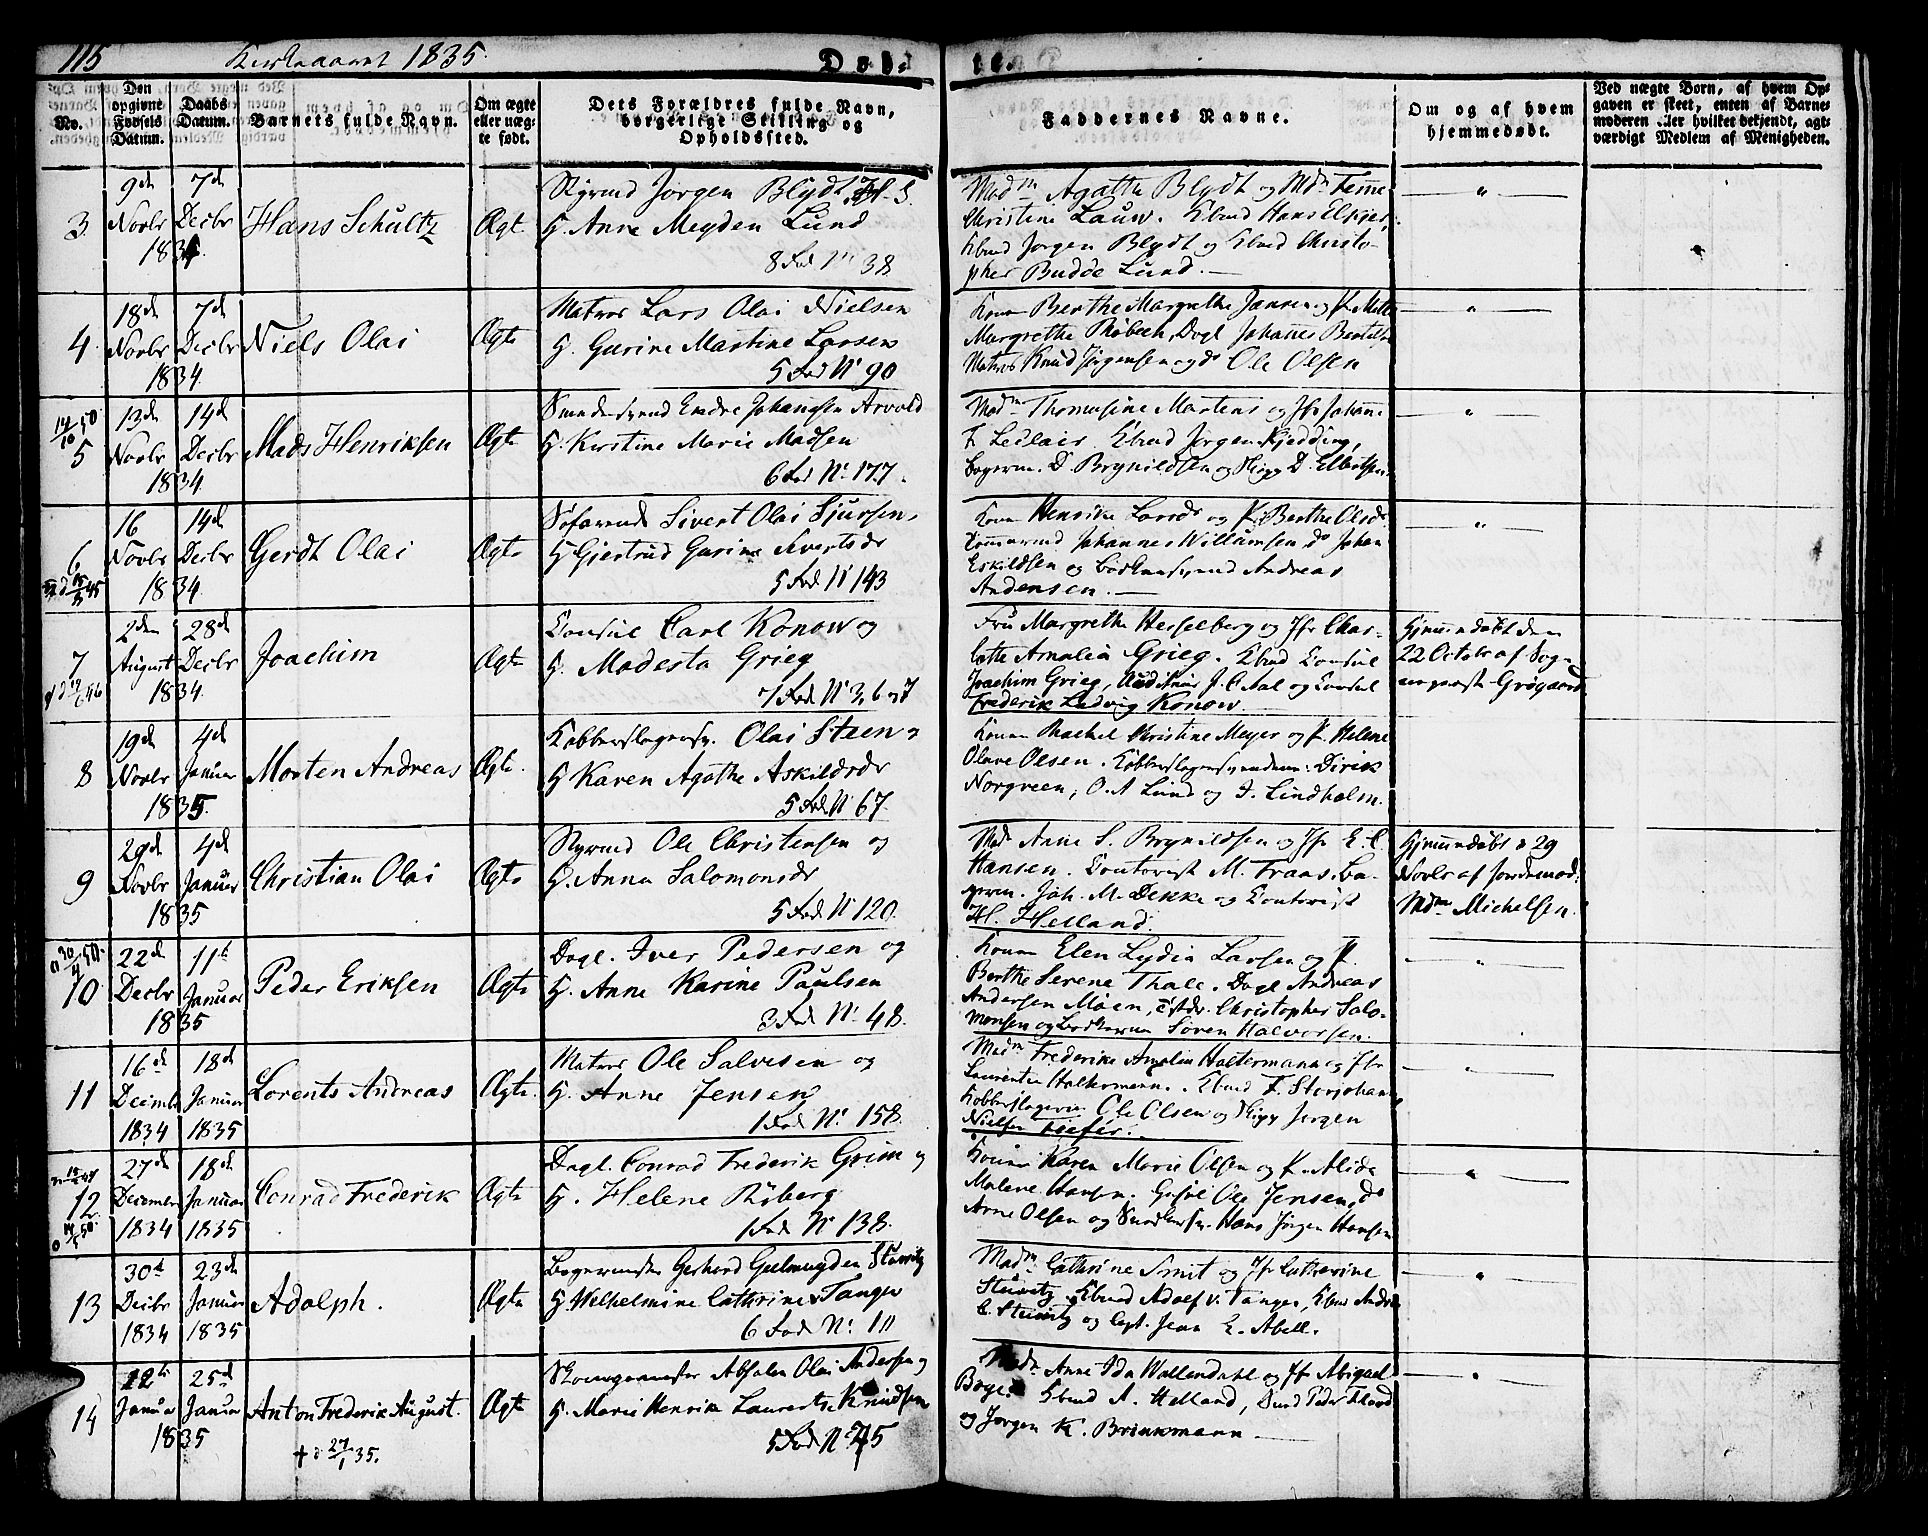 115 Kirkeaaret 1835. Døbte.
No.
Den opgivne Fødsels Datum.
Daabs Datum.
Barnets fulde Navn.
Om ægte eller uægte født.
Dets Forældres fulde Navn, borgerlige Stilling og Opholdssted.
Faddernes Navne.
Om og af hvem hjemmedøbt.
Ved uægte Born, af hvem Opgaven er skeet, enten af Barnemoderen eller hvilket bekjendt, agtværdigt Medlem af Menigheden.
3
9de Novbr 7de Decbr 1834
Hans Schultz
Ægte
Styrmd Jørgen Blydt
H. Anne Meyden Lund
8 Fod No 38
Madm Agathe Blydt og Mdm
Christine Lauw. Kbmd Hans Elskjer,
Kbmd Jørgen Blydt og Kbmd Christo-
pher Budde Lund.
4
18de Novbr 7de Decbr 1834
Niels Olai
Ægte
Matros Lars Olai Nielsen
H. Gurine Martine Larsen
5 Fod No 90
Kone Berthe Margrethe Jansen og P. Mette
Margrethe Røbech, Dagl Johannes Bertels
Matros Knud Jørgensen og do Ole Olsen
14/10 50
5
13de Novbr 14de Decbr 1834
Mads Henriksen
Ægte
Smedesvend Endre Johannsen Arvold
H. Kirstine Marie Madsen
6 Fod No 177.
Madm Thomasine Martens og Jfr Johanne
F. Leclair. Kbmd Jørgen Kjedding,
Bagerm. D. Brynildsen og Skipp D. Elbertsen
6
16 Novbr 14de Decbr 1834
Gerdt Olai
Ægte
Søfarende Sivert Olai Sjursen,
H Gjertrud Gurine Sivertsdr
5 Fod No 143
Kone Henrike Larsdr og P. Berthe Olsdr
Tømmermd Johannes Willumsen do Johan
Eskildsen og Bødkersvend Andreas
Andersen.
7
2den August 28de Decbr 1834
Joachim
Ægte
Consul Carl Konow og
H. Modesta Grieg
7 Fod No 3, 6 og 7
Fru Margrethe Hesselberg og Jfr Char-
lotte Amalia Grieg. Kbmd Consul
Joachim Grieg, Auditeur J. C Aal og Consul
Frederik Ludvig Konow
Hjemmedøbt den
22 Octobr af Sog-
neprest Grøgaard
8
19de Novbr 4de Januar 1835
Morten Andreas
Ægte.
Kobberslagersv. Olai Steen
H Karen Agathe Askildsdr
5 Fod No 67.
Konen Rachel Christine Meyer og P. Helene
Olave Olsen. Kobberslagersvendene: Dirik
Norgreen, O. A Lund og J. Lindholm.
9
29de Novbr 4de Januar 1835
Christian Olai
Ægte
Styrmd Ole Christensen og
H. Anna Salomonsdr
5 Fod No 120.
Mdm Anne S. Brynildsen og Jfr E. C.
Hansen. Contorist M. Traas. Ba-
germ. Joh. M. Dekke og Contorist
H. Helland.
Hjemmedøbt d 29
Novbr af Jordemod:
Mdm Michelsen.
30/4 50.
10
22de Decbr 11te Januar 1835
Peder Eriksen
Ægte
Dagl. Iver Pedersen og
H. Anne Karine Paulsen
3 Fod No 48.
Konen Elen Lydia Larsen og P.
Berthe Serene Thale. Dagl Andreas
Andersen Møen, Christopher Salo-
monsen og Bødkersv Søren Halvorsen.
11
16de Decembr 1834 18de Januar 1835
Lorents Andreas
Ægte.
Matros Ole Salvesen og
H. Anne Jensen
1 Fod No 158.
Madm Frederike Amalia Haltermann og Jfr
Laurentia Haltermann. Kbmd F. Storjohan
Kobberslagerm. Ole Olsen og Skipp Jørgen
Nielsen
12
27de Decembr 1834 18de Januar 1835
Conrad Frederik
Ægte
Dagl. Conrad Frederik Grim og
H. Helene Riberg
1 Fod No 138.
Konen Karen Marie Olsen og P. Alida
Malene Hansen. Ole Jensen, do
Arne Olsen og Hans Jørgen Hansen
13
30te Decbr 1834 23de Januar 1835
Adolph.
Ægte
Bagermester Gerhard Geelmuyden Stüwitz
H Wilhelmine Cathrine Tanger
6 Fod No: 111
Madm Cathrine Smit og Jfr Catherine
Stüwitz. Kbmd Adolf v. Tanger, Kbmd Andr
C. Stüwitz og Capt. Jens E. Abell.
14
12te Januar 25de Januar 1835
Anton Frederik August.
† d 27/1 35.
Ægte
Skomagermester Absalon Olai Andersen og
H. Marie Henrike Laurentze Knudsen
5 Fod No 75
Madm Anne Ida Wallendahl og Jfr Abigael
Bøge. Kbmd A. Helland, Peder
og Jørgen K. Brinkmann